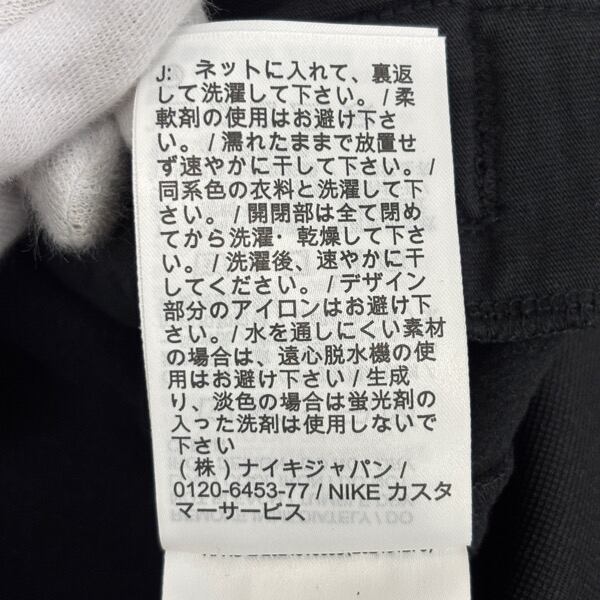 J: ネットに入れて、裏返
して洗濯して下さい。/ 柔
軟剤の使用はお避け下さ
い。 / 濡れたままで放置せ
ず速やかに干して下さい。 /
同系色の衣料と洗濯して下
さい。 / 開閉部は全て閉め
てから洗濯・乾燥して下さ
い。 / 洗濯後、速やかに干
してください。 / デザイン
部分のアイロンはお避け下
さい。/ 水を通しにくい素材
の場合は、遠心脱水機の使
用はお避け下さい / 生成
り、淡色の場合は蛍光剤の
入った洗剤は使用しないで
下さい
(株) ナイキジャパン /
0120-6453-77 / NIKE カスタ
マーサービス